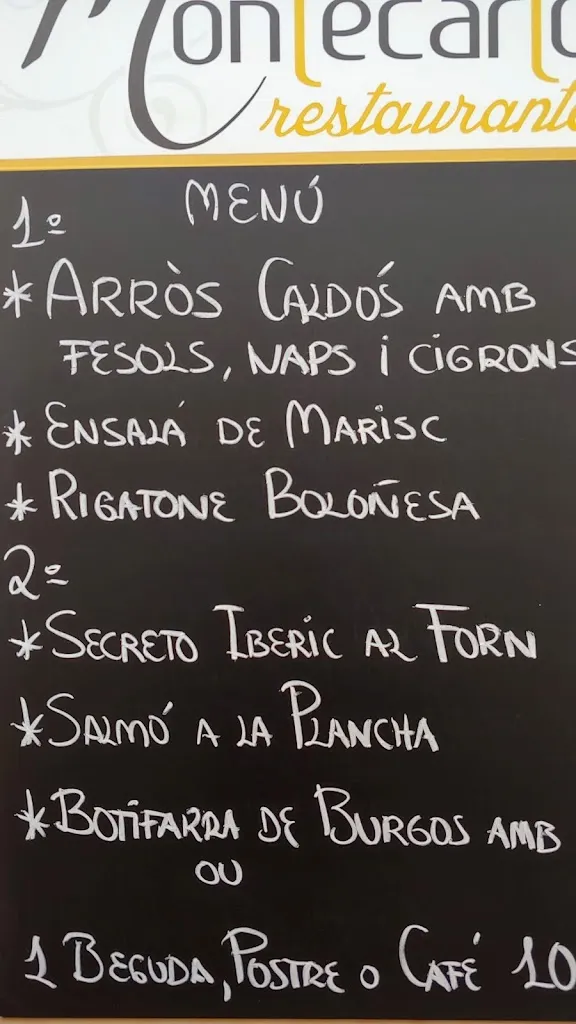 Montecarlo
restaurante
MENÚ
1º
* ARRÒS CALDÓS AMB
FESOLS, NAPS i CIGRONS
* ENSALÁ DE MARISC
* RIGATONE BOLOÑESA
2º
* SECRETO IBERIC AL FORN
* SALMÓ A LA PLANCHA
* BOTIFARRA DE BURGOS AMB
OU
1 BEGUDA, POSTRE O CAFÉ 10